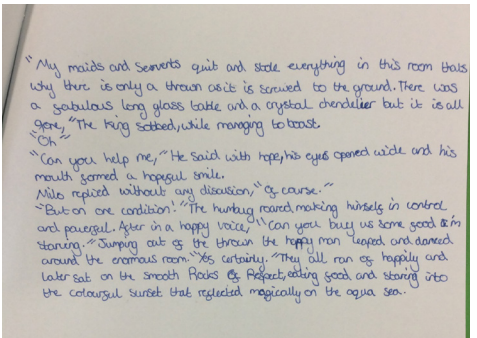 "My maids and Serverts quit and stole everything in this room thats
why there is only a thrown as it is screwed to the ground. There was
a fabulous long glass table and a crystal chendelier but it is all
gone," The King sobbed, while managing to boast.
"Oh"
"Can you help me," He said with hope, his eyes opened wide and his
mouth formed a hopeful smile.
Milo replied without any discusion, "of course."
"But on one condition!" The humbug roared making himself in control
and powerful. After in a happy voice, "Can you buy us some food I'm
starving." Jumping out of the thrown the happy man leaped and danced
around the enormous room. "Yes certainly." They all ran of happily and
later sat on the smooth Rocks of Reflect, eating food and staring into
the colourful sunset that reflected magically on the aqua sea.